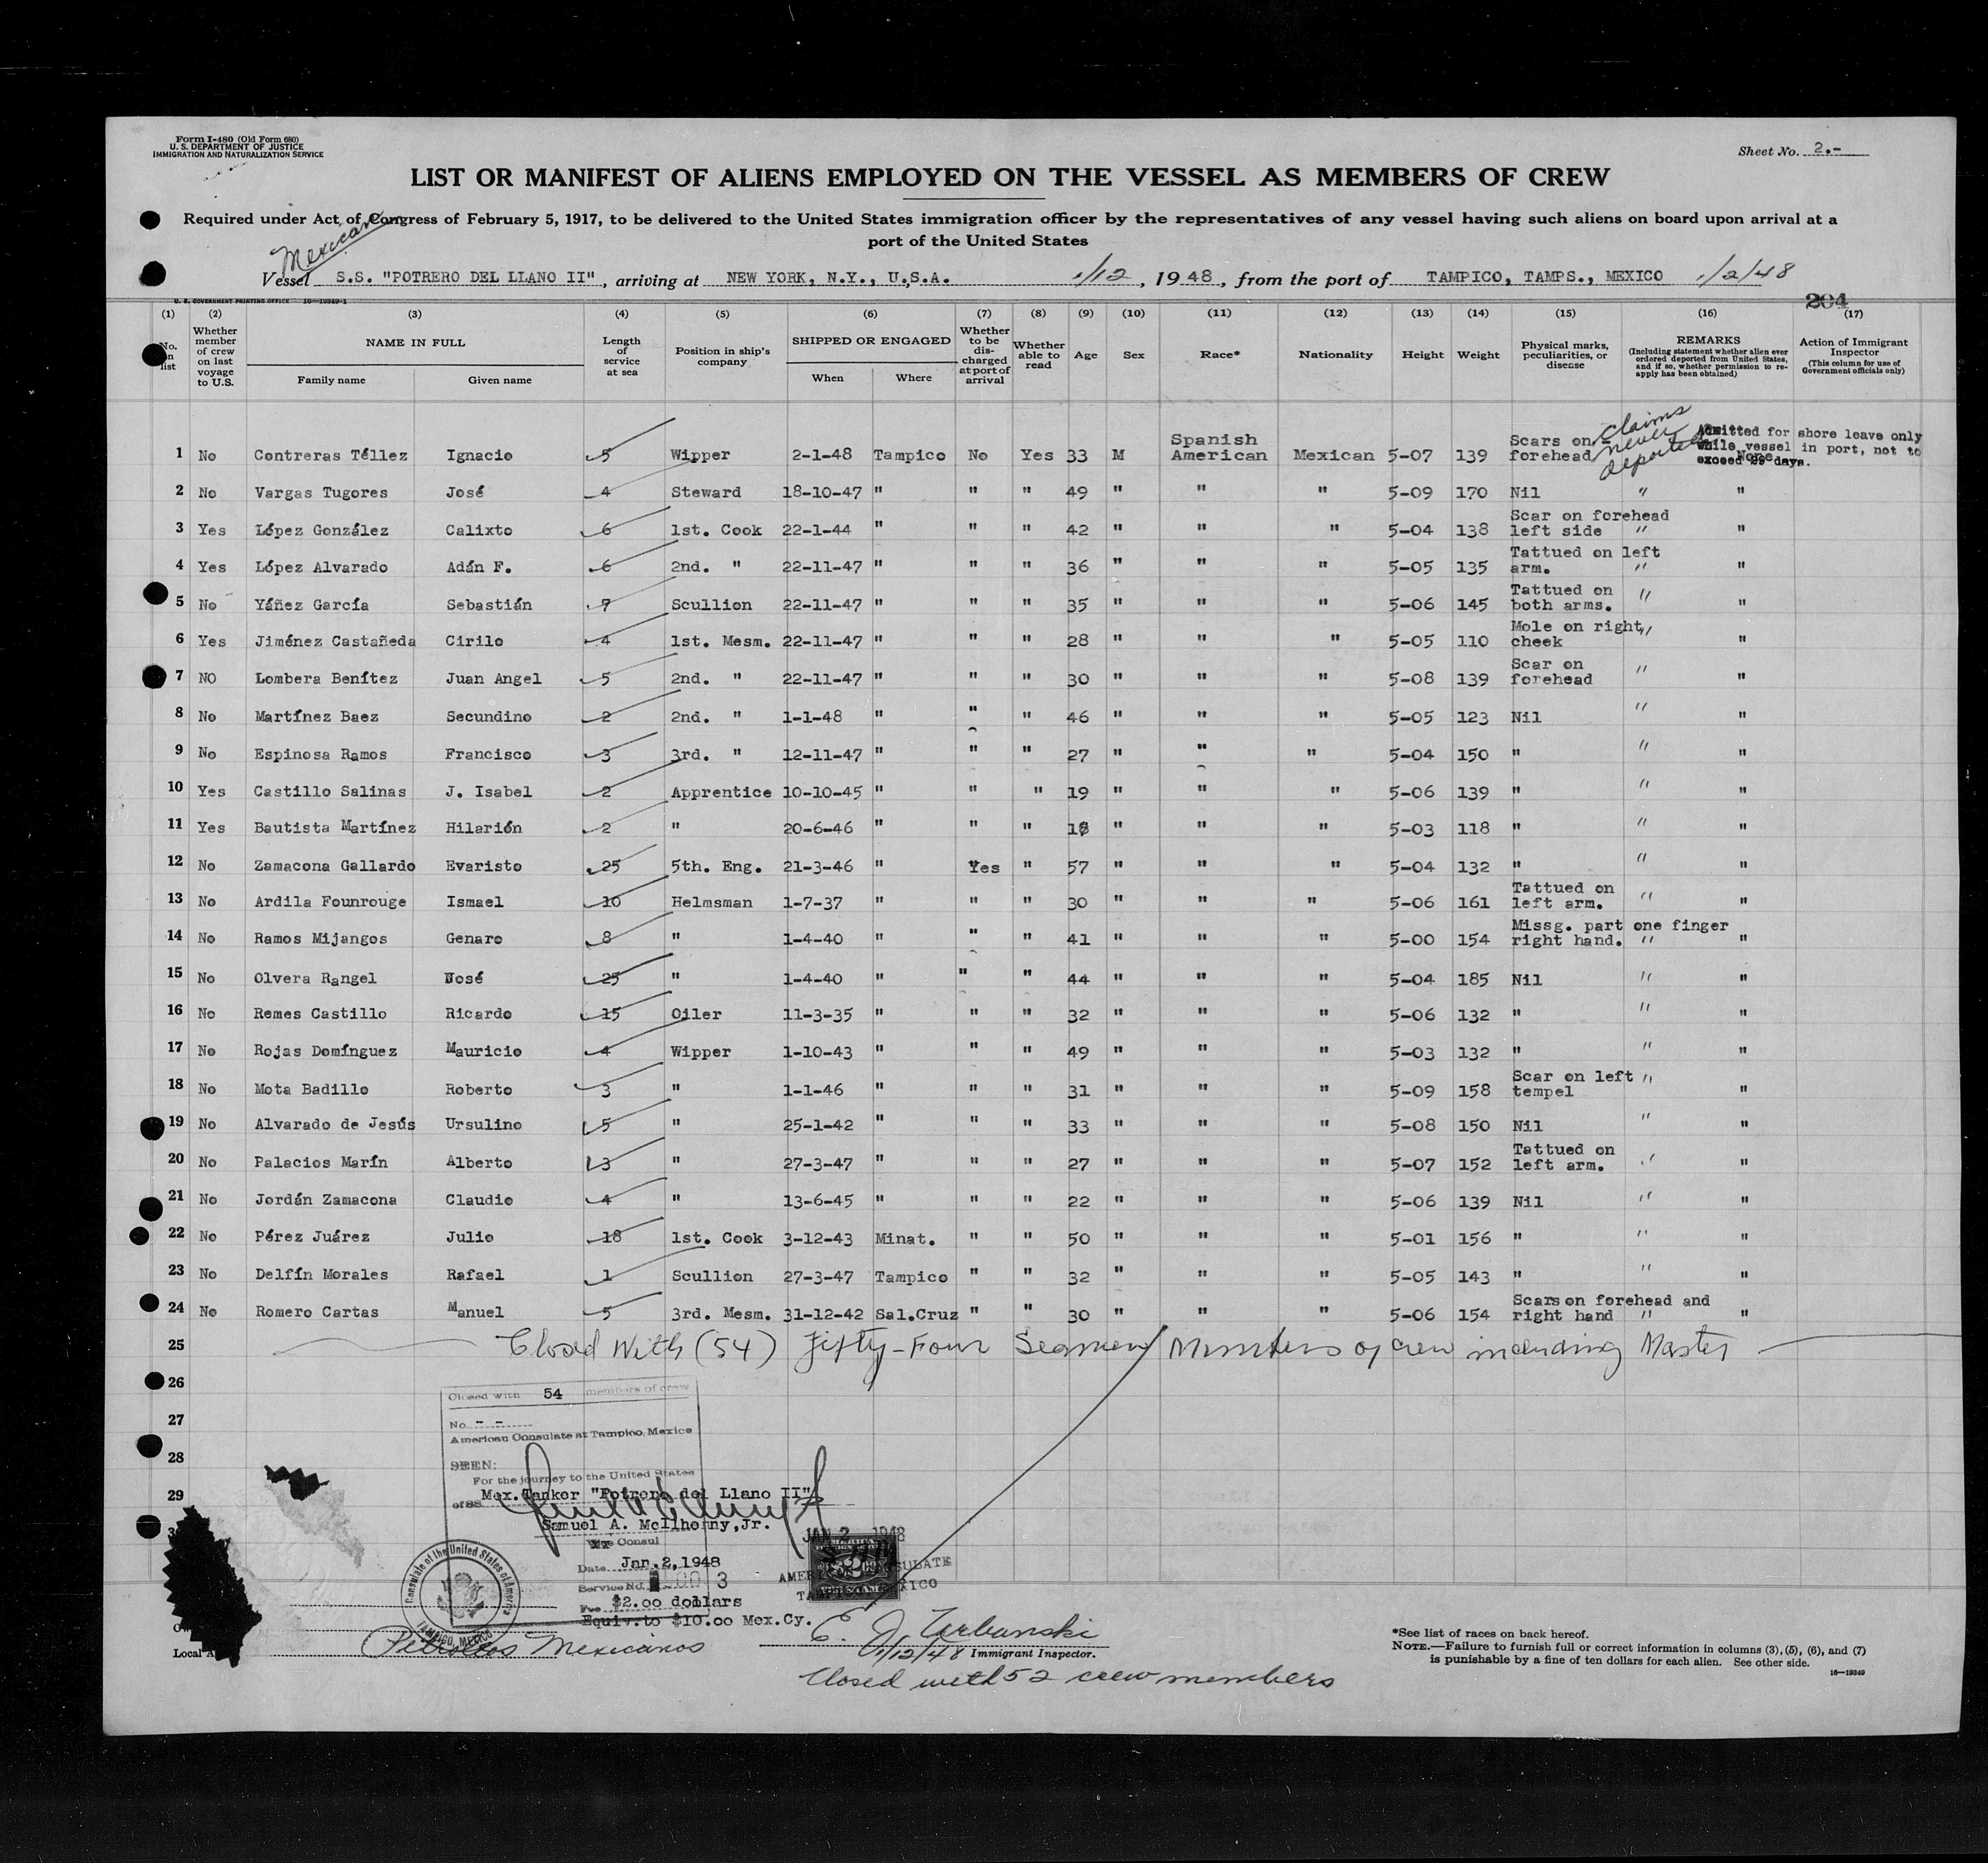 Form I-480 (Old Form 680)
U. S. DEPARTMENT OF JUSTICE
IMMIGRATION AND NATURALIZATION SERVICE
Sheet No. 2.-
LIST OR MANIFEST OF ALIENS EMPLOYED ON THE VESSEL AS MEMBERS OF CREW
Required under Act of Congress of February 5, 1917, to be delivered to the United States immigration officer by the representatives of any vessel having such aliens on board upon arrival at a
port of the United States
Mexican
Vessel S.S. "POTRERO DEL LLANO II", arriving at NEW YORK, N.Y., U.S.A. 1/12, 1948, from the port of TAMPICO, TAMPS., MEXICO 1/2/48
U. S. GOVERNMENT PRINTING OFFICE 16-19349-1
204
(1) (2) (3) (4) (5) (6) (7) (8) (9) (10) (11) (12) (13) (14) (15) (16) (17)
No. on list
Whether member of crew on last voyage to U.S.
NAME IN FULL
Family name Given name
Length of service at sea
Position in ship's company
SHIPPED OR ENGAGED
When Where
Whether to be discharged at port of arrival
Whether able to read
Age Sex Race* Nationality Height Weight
Physical marks, peculiarities, or disease
REMARKS
(Including statement whether alien ever ordered deported from United States, and if so, whether permission to reapply has been obtained)
Action of Immigrant Inspector
(This column for use of Government officials only)
claims never deported
Admitted for shore leave only while vessel in port, not to exceed 29 days.
1 No Contreras Téllez Ignacio 5 Wipper 2-1-48 Tampico No Yes 33 M Spanish American Mexican 5-07 139 Scars on forehead None
2 No Vargas Tugores José 4 Steward 18-10-47 " " " 49 " " " 5-09 170 Nil " "
3 Yes López González Calixto 6 1st. Cook 22-1-44 " " " 42 " " " 5-04 138 Scar on forehead left side " "
4 Yes López Alvarado Adán F. 6 2nd. " 22-11-47 " " " 36 " " " 5-05 135 Tattued on left arm. " "
5 No Yáñez García Sebastián 7 Scullion 22-11-47 " " " 35 " " " 5-06 145 Tattued on both arms. " "
6 Yes Jiménez Castañeda Cirilo 4 1st. Mesm. 22-11-47 " " " 28 " " " 5-05 110 Mole on right cheek " "
7 NO Lombera Benítez Juan Angel 5 2nd. " 22-11-47 " " " 30 " " " 5-08 139 Scar on forehead " "
8 No Martínez Baez Secundino 2 2nd. " 1-1-48 " " " 46 " " " 5-05 123 Nil " "
9 No Espinosa Ramos Francisco 3 3rd. " 12-11-47 " " " 27 " " " 5-04 150 " " "
10 Yes Castillo Salinas J. Isabel 2 Apprentice 10-10-45 " " " 19 " " " 5-06 139 " " "
11 Yes Bautista Martínez Hilarión 2 " 20-6-46 " " " 18 " " " 5-03 118 " " "
12 No Zamacona Gallardo Evaristo 25 5th. Eng. 21-3-46 " Yes " 57 " " " 5-04 132 " " "
13 No Ardila Founrouge Ismael 10 Helmsman 1-7-37 " " " 30 " " " 5-06 161 Tattued on left arm. " "
14 No Ramos Mijangos Genaro 8 " 1-4-40 " " " 41 " " " 5-00 154 Missg. part one finger right hand. " "
15 No Olvera Rangel José 25 " 1-4-40 " " " 44 " " " 5-04 185 Nil " "
16 No Remes Castillo Ricardo 15 Oiler 11-3-35 " " " 32 " " " 5-06 132 " " "
17 No Rojas Domínguez Mauricio 4 Wipper 1-10-43 " " " 49 " " " 5-03 132 " " "
18 No Mota Badillo Roberto 3 " 1-1-46 " " " 31 " " " 5-09 158 Scar on left tempel " "
19 No Alvarado de Jesús Ursulino 5 " 25-1-42 " " " 33 " " " 5-08 150 Nil " "
20 No Palacios Marín Alberto 3 " 27-3-47 " " " 27 " " " 5-07 152 Tattued on left arm. " "
21 No Jordán Zamacona Claudio 4 " 13-6-45 " " " 22 " " " 5-06 139 Nil " "
22 No Pérez Juárez Julio 18 1st. Cook 3-12-43 Minat. " " 50 " " " 5-01 156 " " "
23 No Delfín Morales Rafael 1 Scullion 27-3-47 Tampico " " 32 " " " 5-05 143 " " "
24 No Romero Cartas Manuel 5 3rd. Mesm. 31-12-42 Sal.Cruz " " 30 " " " 5-06 154 Scars on forehead and right hand " "
25 Closed With (54) Fifty-Four Seamen/Members of crew including Master
26
27
28
29
Closed with 54 members of crew
No. - -
American Consulate at Tampico, Mexico
SEEN:
For the journey to the United States
of SS. Mex.Tanker "Potrero del Llano II"
Samuel A. McIlhenny,Jr.
Vice Consul
Date Jan.2,1948
Service No. 3
Fee $2.00 dollars
Equiv.to $10.00 Mex.Cy.
Consulate of the United States of America
TAMPICO, MEXICO
JAN 2 1948
AMERICAN CONSULATE
TAMPICO, MEXICO
Local A
Petroleos Mexicanos
E. J. Urbanski
1/12/48 Immigrant Inspector.
Closed with 52 crew members
*See list of races on back hereof.
NOTE.—Failure to furnish full or correct information in columns (3), (5), (6), and (7)
is punishable by a fine of ten dollars for each alien. See other side.
16—19349